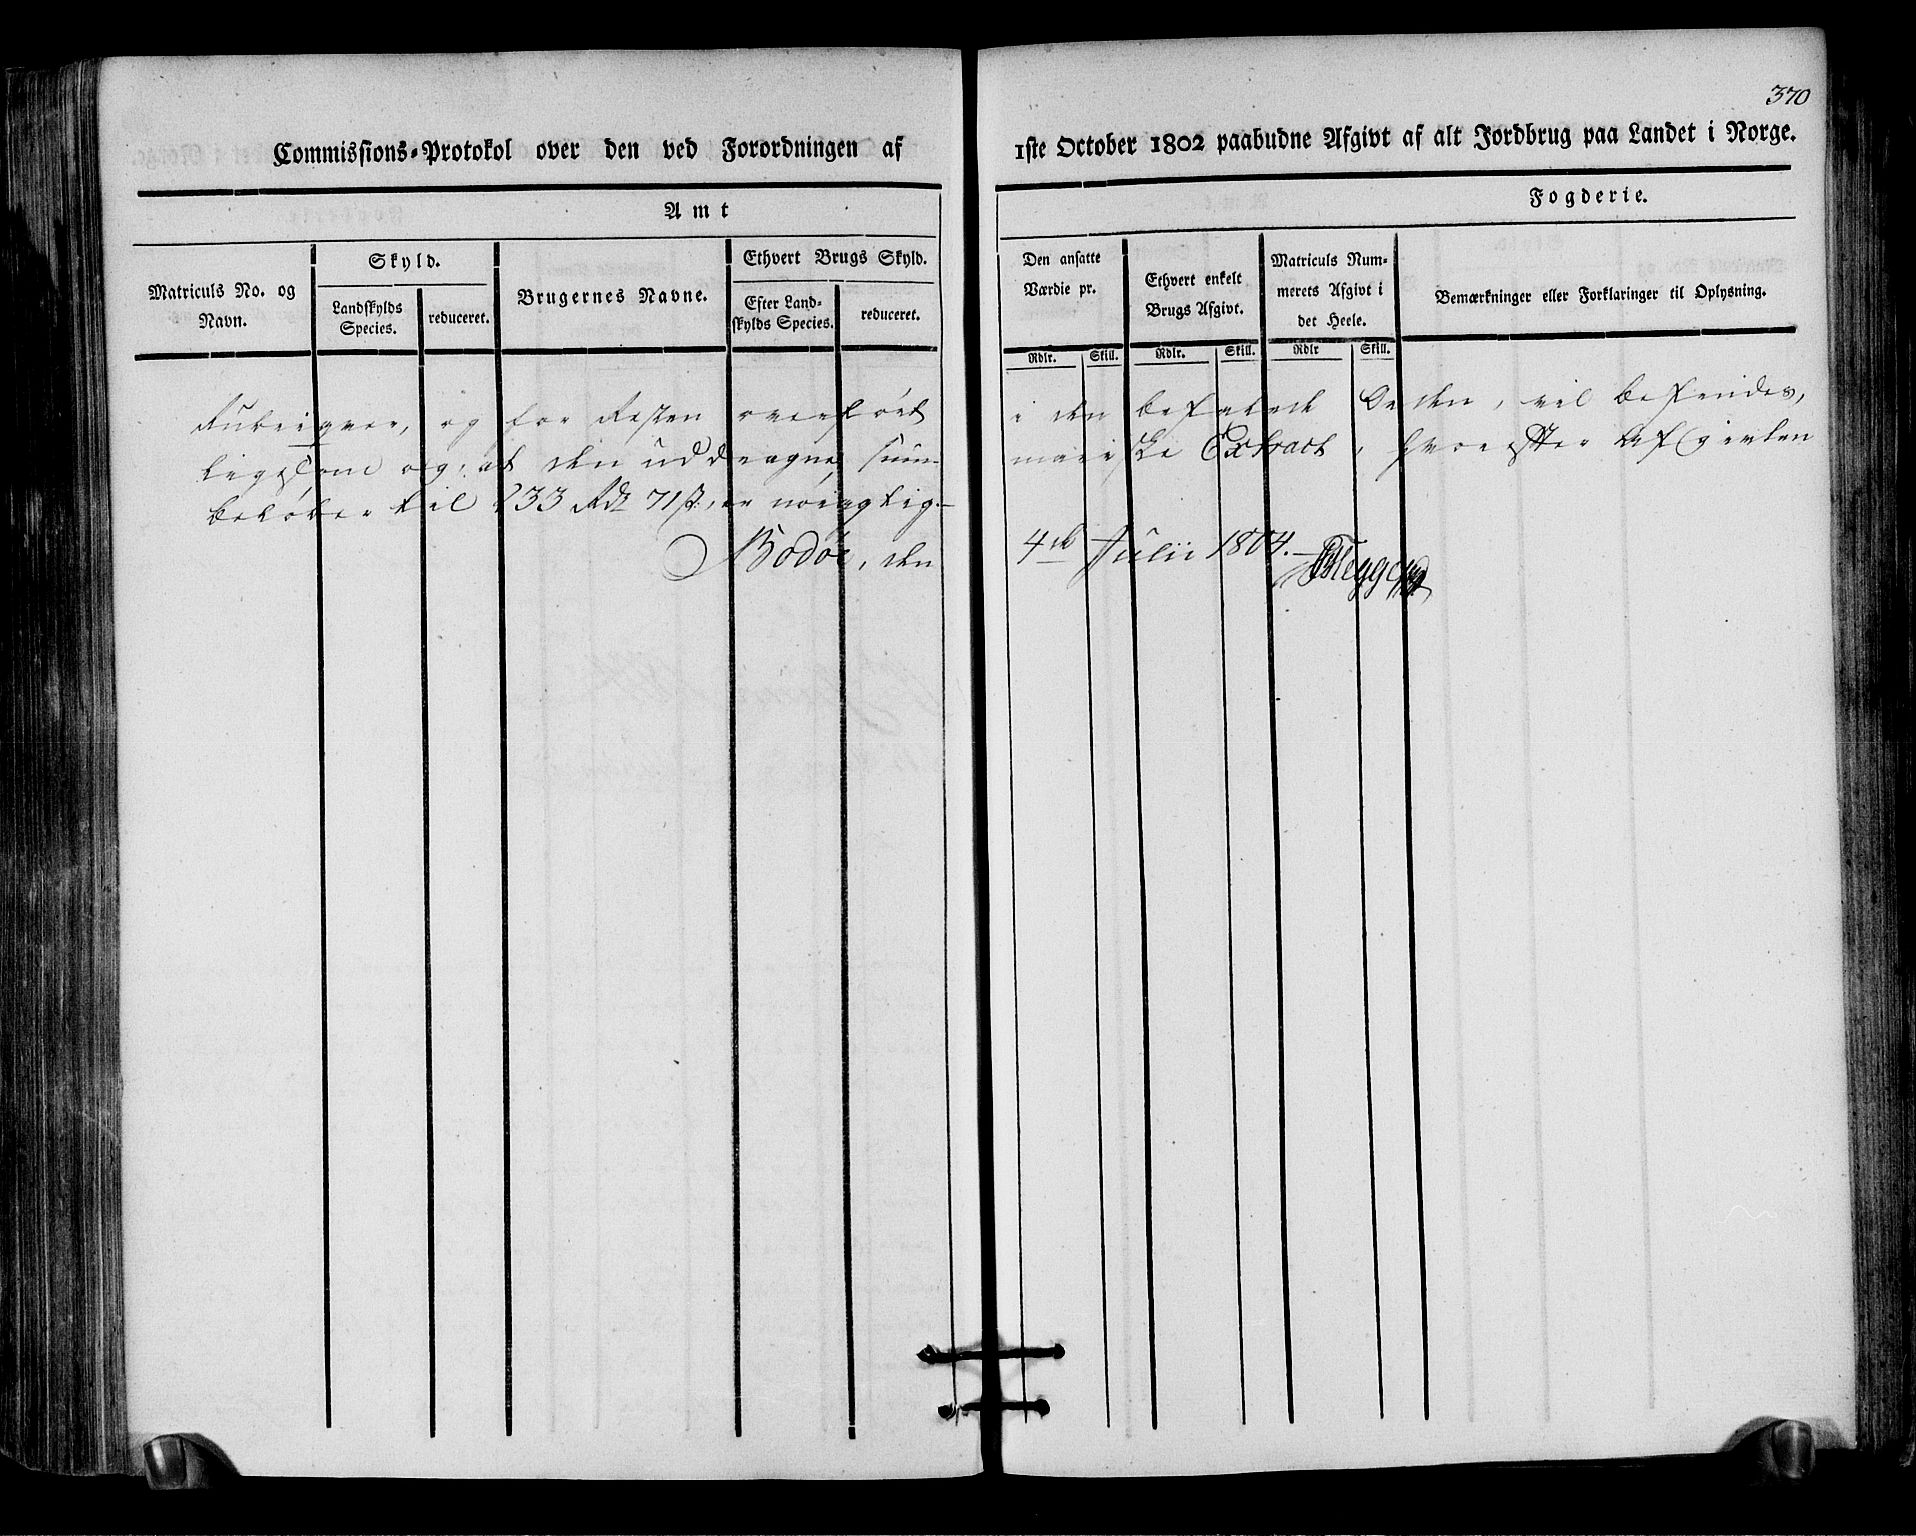 370
Commissions-Protokol over den ved Forordningen af 1ste October 1802 paabudne Afgivt af alt Jordbrug paa Landet i Norge.
Amt
Fogderie.
Matriculs No. og Navn.
Skyld.
Landskylds Species.
reduceret.
Brugernes Navne.
Ethvert Brugs Skyld.
Efter Landskylds Species.
reduceret.
Den ansatte Værdie pr.
Rdlr. Skill.
Ethvert enkelt Brugs Afgivt.
Rdlr. Skill.
Matriculs Nummerets Afgivt i det Heele.
Rdlr Skill.
Bemærkninger eller Forklaringer til Oplysning.
Rubriqver, og for Resten overført i den befalede Orden, vil befindes,
ligesom og, at den uddragne summariske Extract, hvorefter Afgivten
beløber til 233 Rdr 71 s, er nøiagtig.
Bodøe, den 4de Julii 1804.